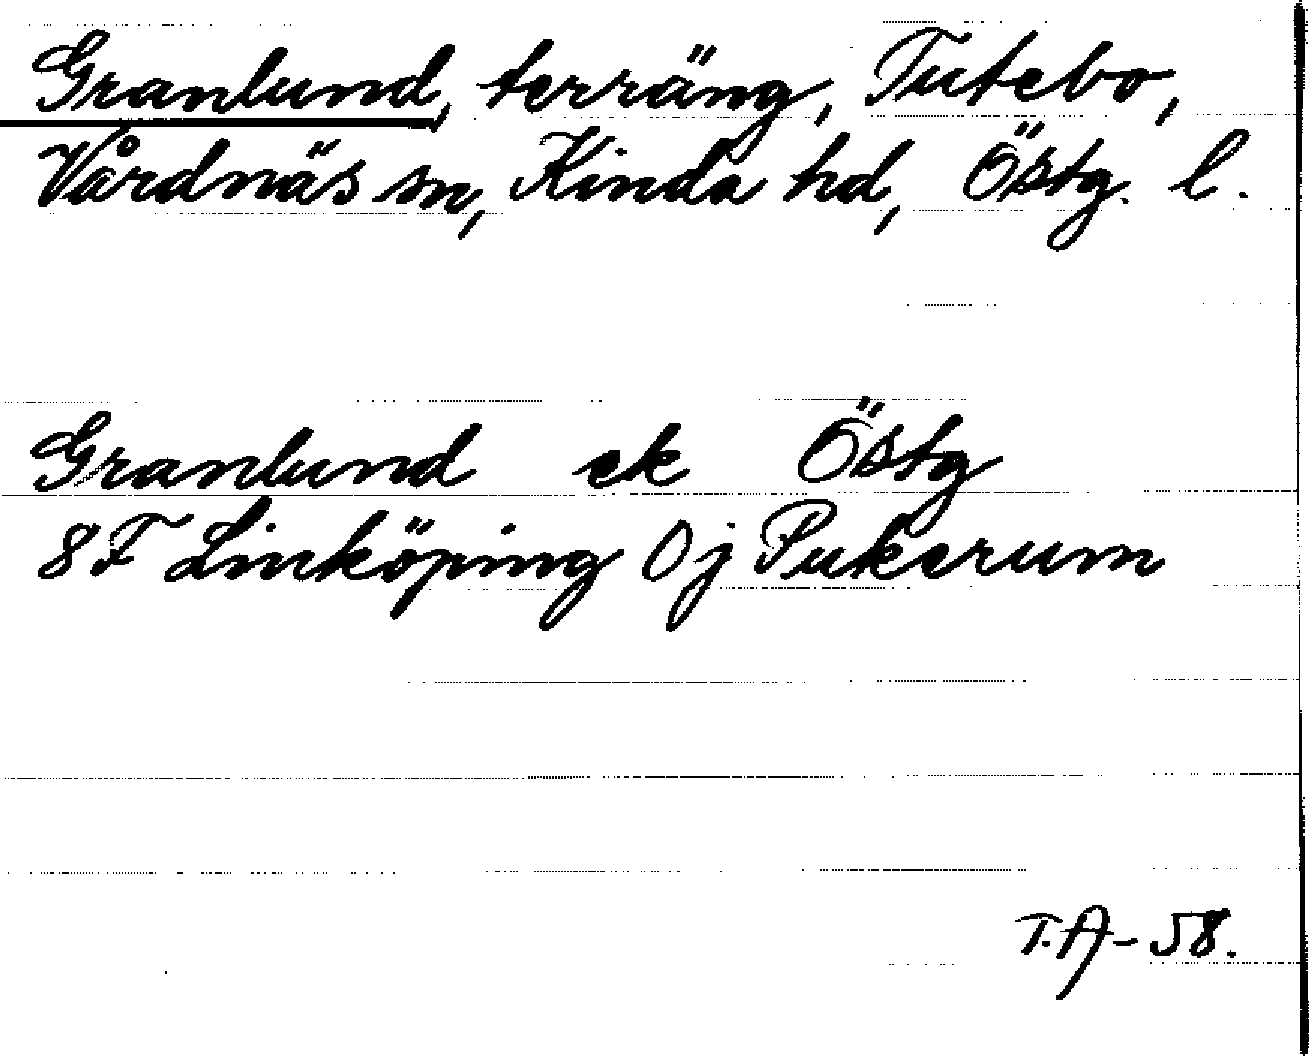 Granlund, terräng, Tutebo,
Vårdnäs sn, Kinda hd, Östg. l.
Granlund ek Östg
8F Linköping 0j Pukerum
T.A-58.